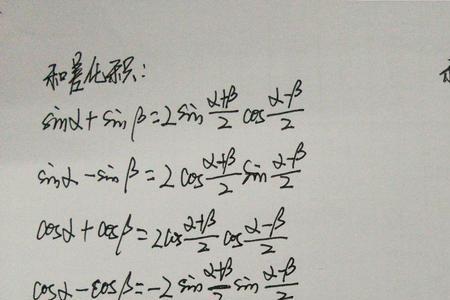 和差化积:
sinα+sinβ=2sin\frac{α+β}{2}cos\frac{α-β}{2}
sinα-sinβ=2cos\frac{α+β}{2}sin\frac{α-β}{2}
cosα+cosβ=2cos\frac{α+β}{2}cos\frac{α-β}{2}
cosα-cosβ=-2sin\frac{α+β}{2}sin\frac{α-β}{2}